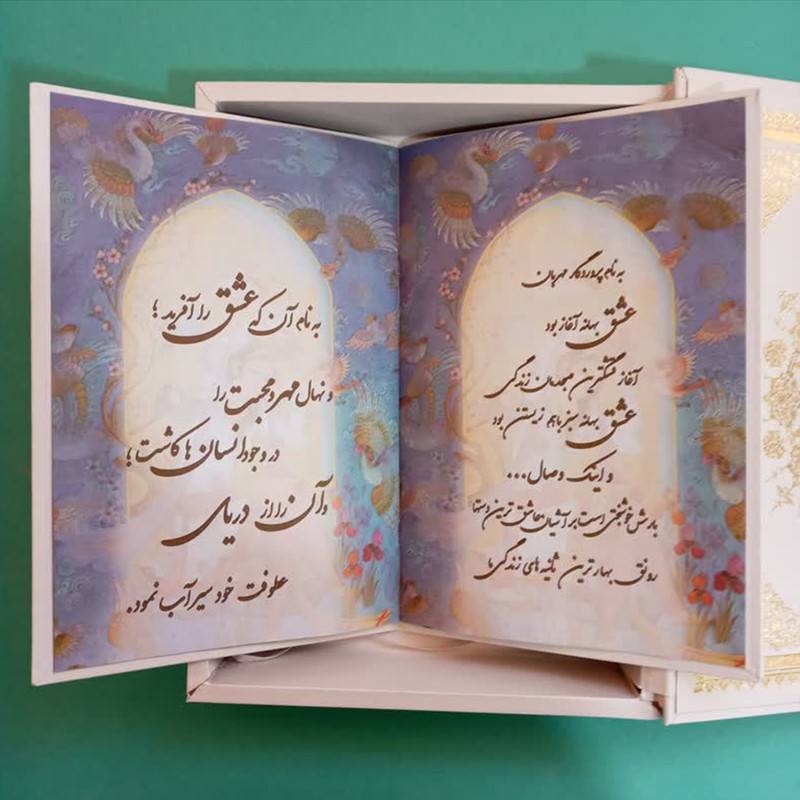 به نام پروردگار مهربان
عشق بهانه آغاز بود
آغاز قشنگترین همدمان زندگی
عشق بهانه سبز باهم زیستن بود
و اینک وصال...
بارش خوشبختی است بر آشیان عاشق ترین دستها
رونق بهارترین ثانیه های زندگی ما
به نام آن که عشق را آفرید ؛
و نهال مهر و محبت را
در وجود انسان ها کاشت ؛
و آن را از دریای
عطوفت خود سیرآب نمود.